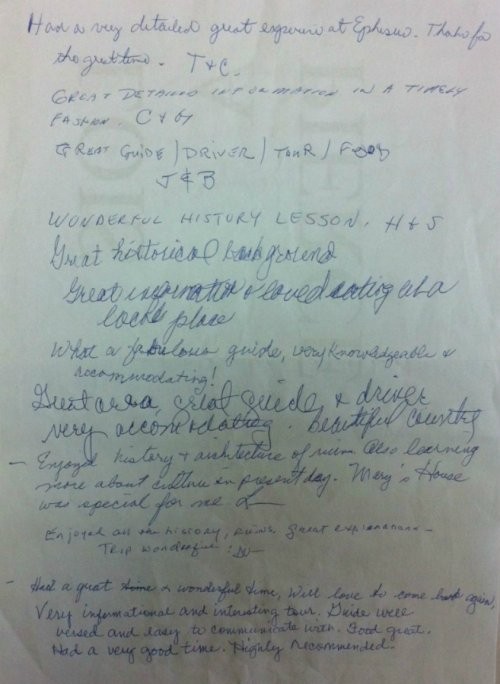 Had a very detailed great experience at Ephesus. Thanks for
the great time. T & C.
GREAT DETAILED INFORMATION IN A TIMELY
FASHION. C & G
GREAT GUIDE / DRIVER / TOUR / FOOD
J & B
WONDERFUL HISTORY LESSON. H & S
Great historical background
Great information & loved eating at a
local place
What a fabulous guide, very knowledgeable &
accommodating!
Great area, great guide & driver
very accomodating. beautiful country
- Enjoyed history & architecture of ruins Also learning
more about culture in present day. Mary's House
was special for me
Enjoyed all the history, ruins Great explanations -
Trip wonderful!
- Had a great time & wonderful time, Will love to come back again,
Very informational and interesting tour. Guide well
versed and easy to communicate with. Food great.
Had a very good time. Highly recommended.